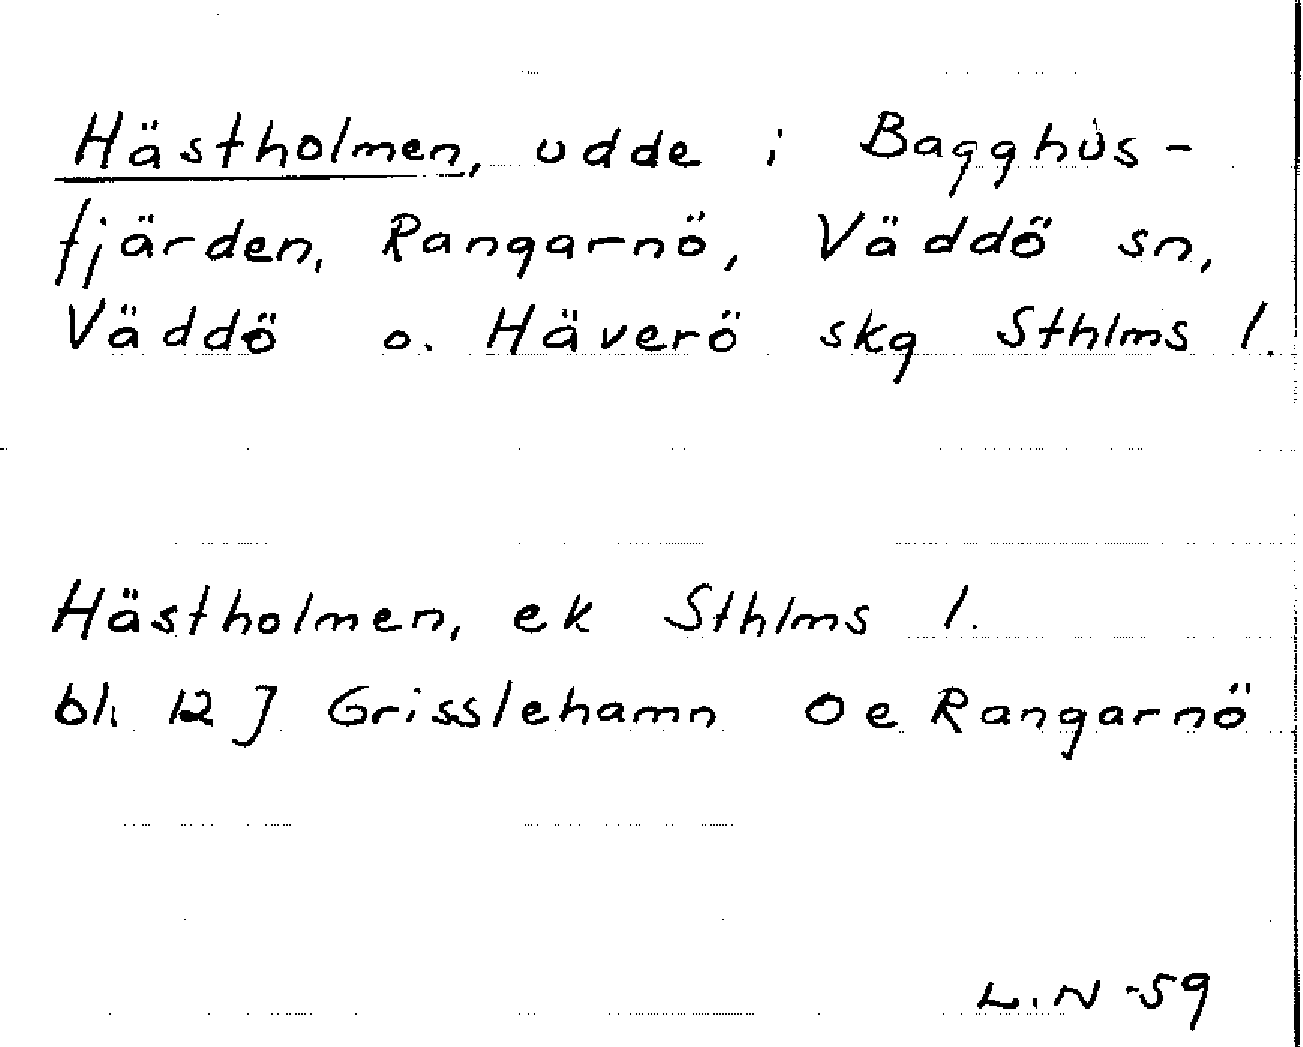 Hästholmen, udde i Bagghus-
fjärden, Rangarnö, Väddö sn,
Väddö o. Häverö skg Sthlms l.
Hästholmen, ek Sthlms l.
bl. 12 J Grisslehamn Oe Rangarnö
L.N -59